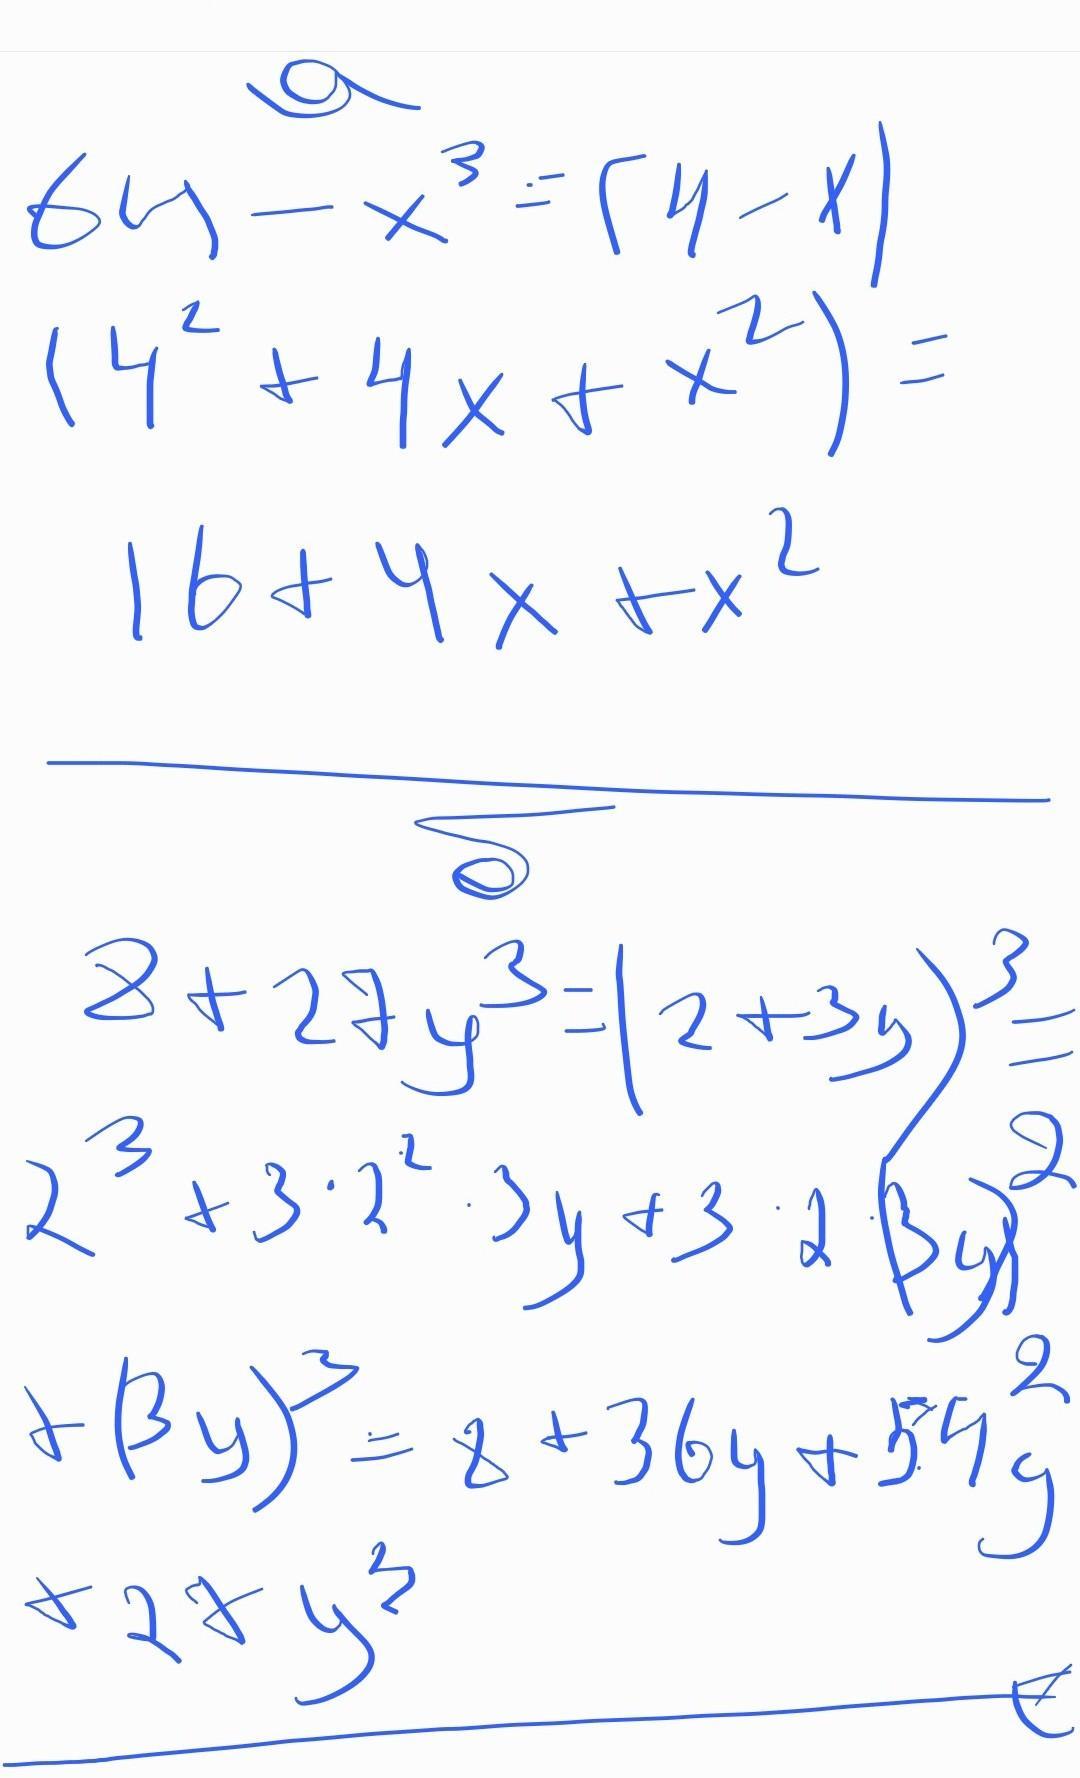 а
64 - x³ = (4 - x)
(4² + 4x + x²) =
16 + 4x + x²
б
8 + 27y³ = (2 + 3y)³ =
2³ + 3 · 2² · 3y + 3 · 2 · (3y)²
+ (3y)³ = 8 + 36y + 54y²
+ 27y³